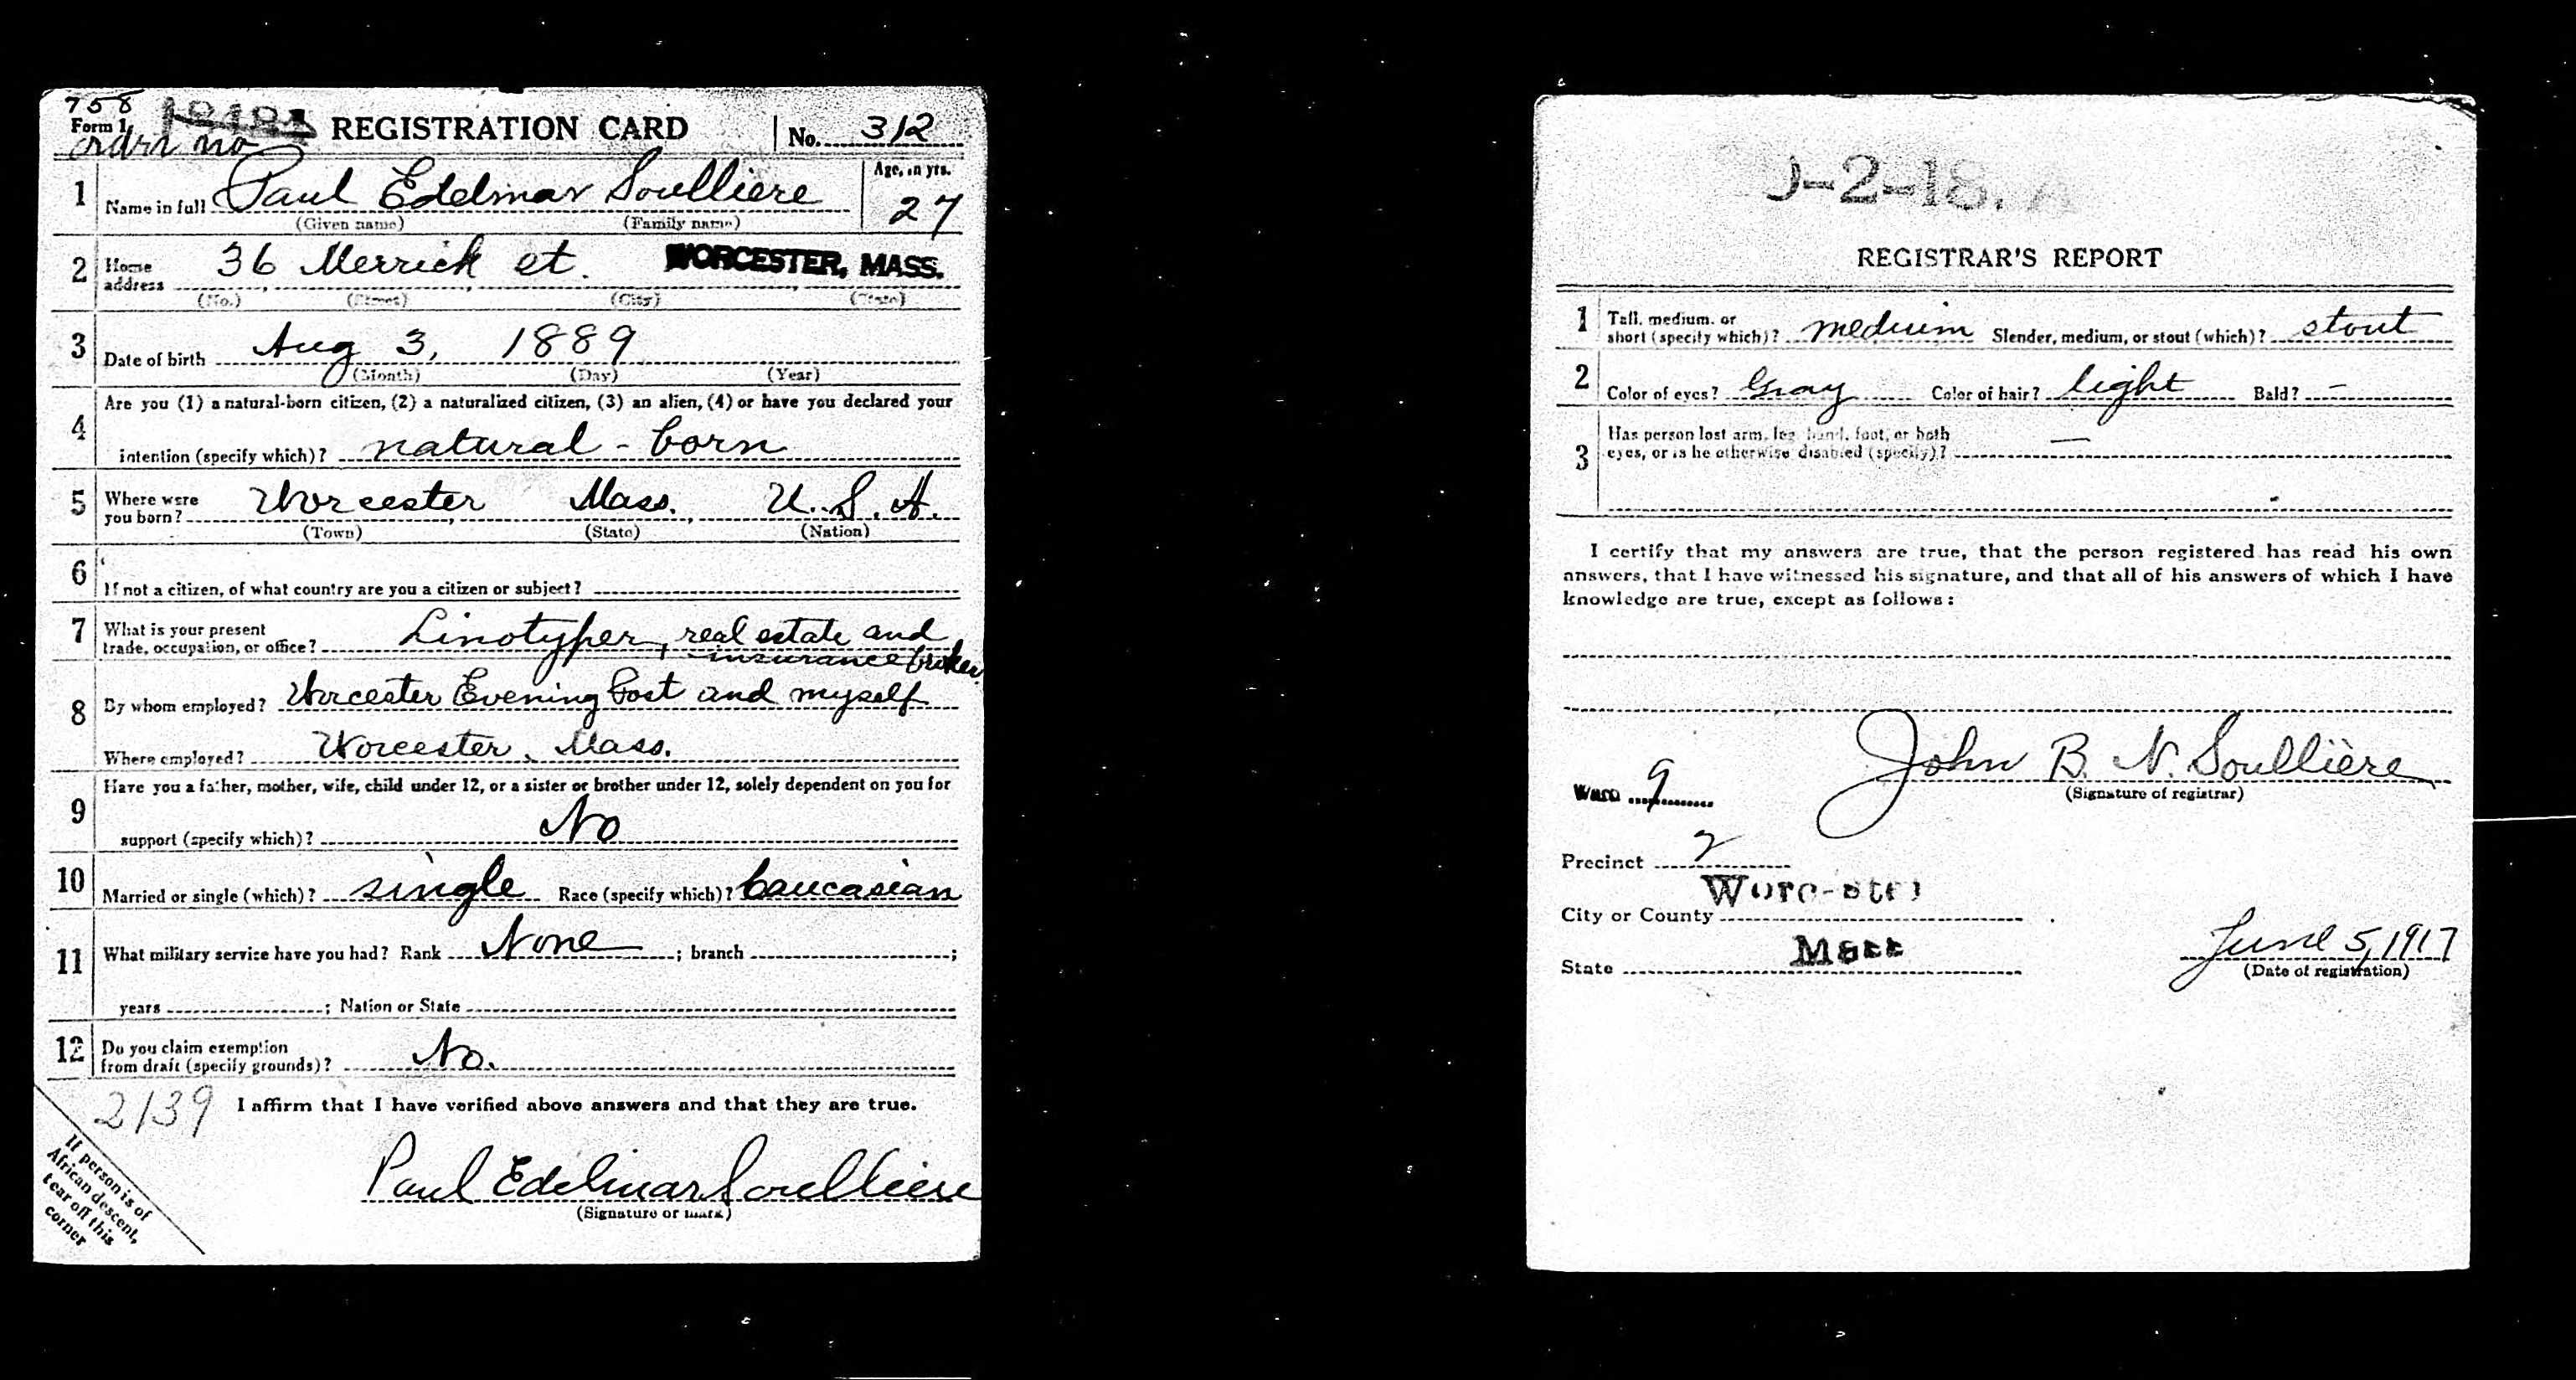 758
Form 1 REGISTRATION CARD No. 312
order no
1 Name in full Paul Edelmar Soulliere Age, in yrs. 27
(Given name) (Family name)
2 Home address 36 Merrick st. WORCESTER, MASS.
(No.) (Street) (City) (State)
3 Date of birth Aug 3, 1889
(Month) (Day) (Year)
4 Are you (1) a natural-born citizen, (2) a naturalized citizen, (3) an alien, (4) or have you declared your
intention (specify which)? natural-born
5 Where were you born? Worcester Mass. U.S.A.
(Town) (State) (Nation)
6 If not a citizen, of what country are you a citizen or subject?
7 What is your present trade, occupation, or office? Linotyper, real estate and
insurance broker
8 By whom employed? Worcester Evening Post and myself
Where employed? Worcester, Mass.
9 Have you a father, mother, wife, child under 12, or a sister or brother under 12, solely dependent on you for
support (specify which)? No
10 Married or single (which)? single Race (specify which)? Caucasian
11 What military service have you had? Rank None ; branch ;
years ; Nation or State
12 Do you claim exemption from draft (specify grounds)? No.
2139 I affirm that I have verified above answers and that they are true.
Paul Edelmar Soulliere
(Signature or mark)
If person is of
African descent,
tear off this
corner
REGISTRAR'S REPORT
1 Tall, medium, or short (specify which)? medium Slender, medium, or stout (which)? stout
2 Color of eyes? Gray Color of hair? light Bald? –
3 Has person lost arm, leg, hand, foot, or both
eyes, or is he otherwise disabled (specify)? —
I certify that my answers are true, that the person registered has read his own
answers, that I have witnessed his signature, and that all of his answers of which I have
knowledge are true, except as follows:
John B. N. Soullière
(Signature of registrar)
9
Precinct 2
City or County Worcester
State Mass
June 5, 1917
(Date of registration)